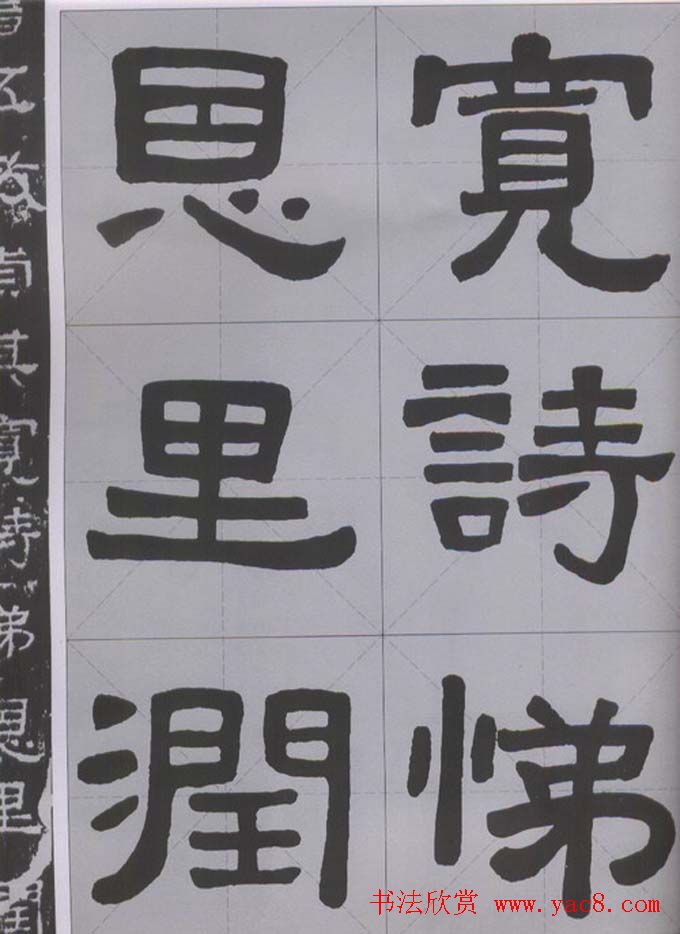 寬詩悌
恩里潤
五教貞其寬詩悌恩里潤
书法欣赏 www.yac8.com